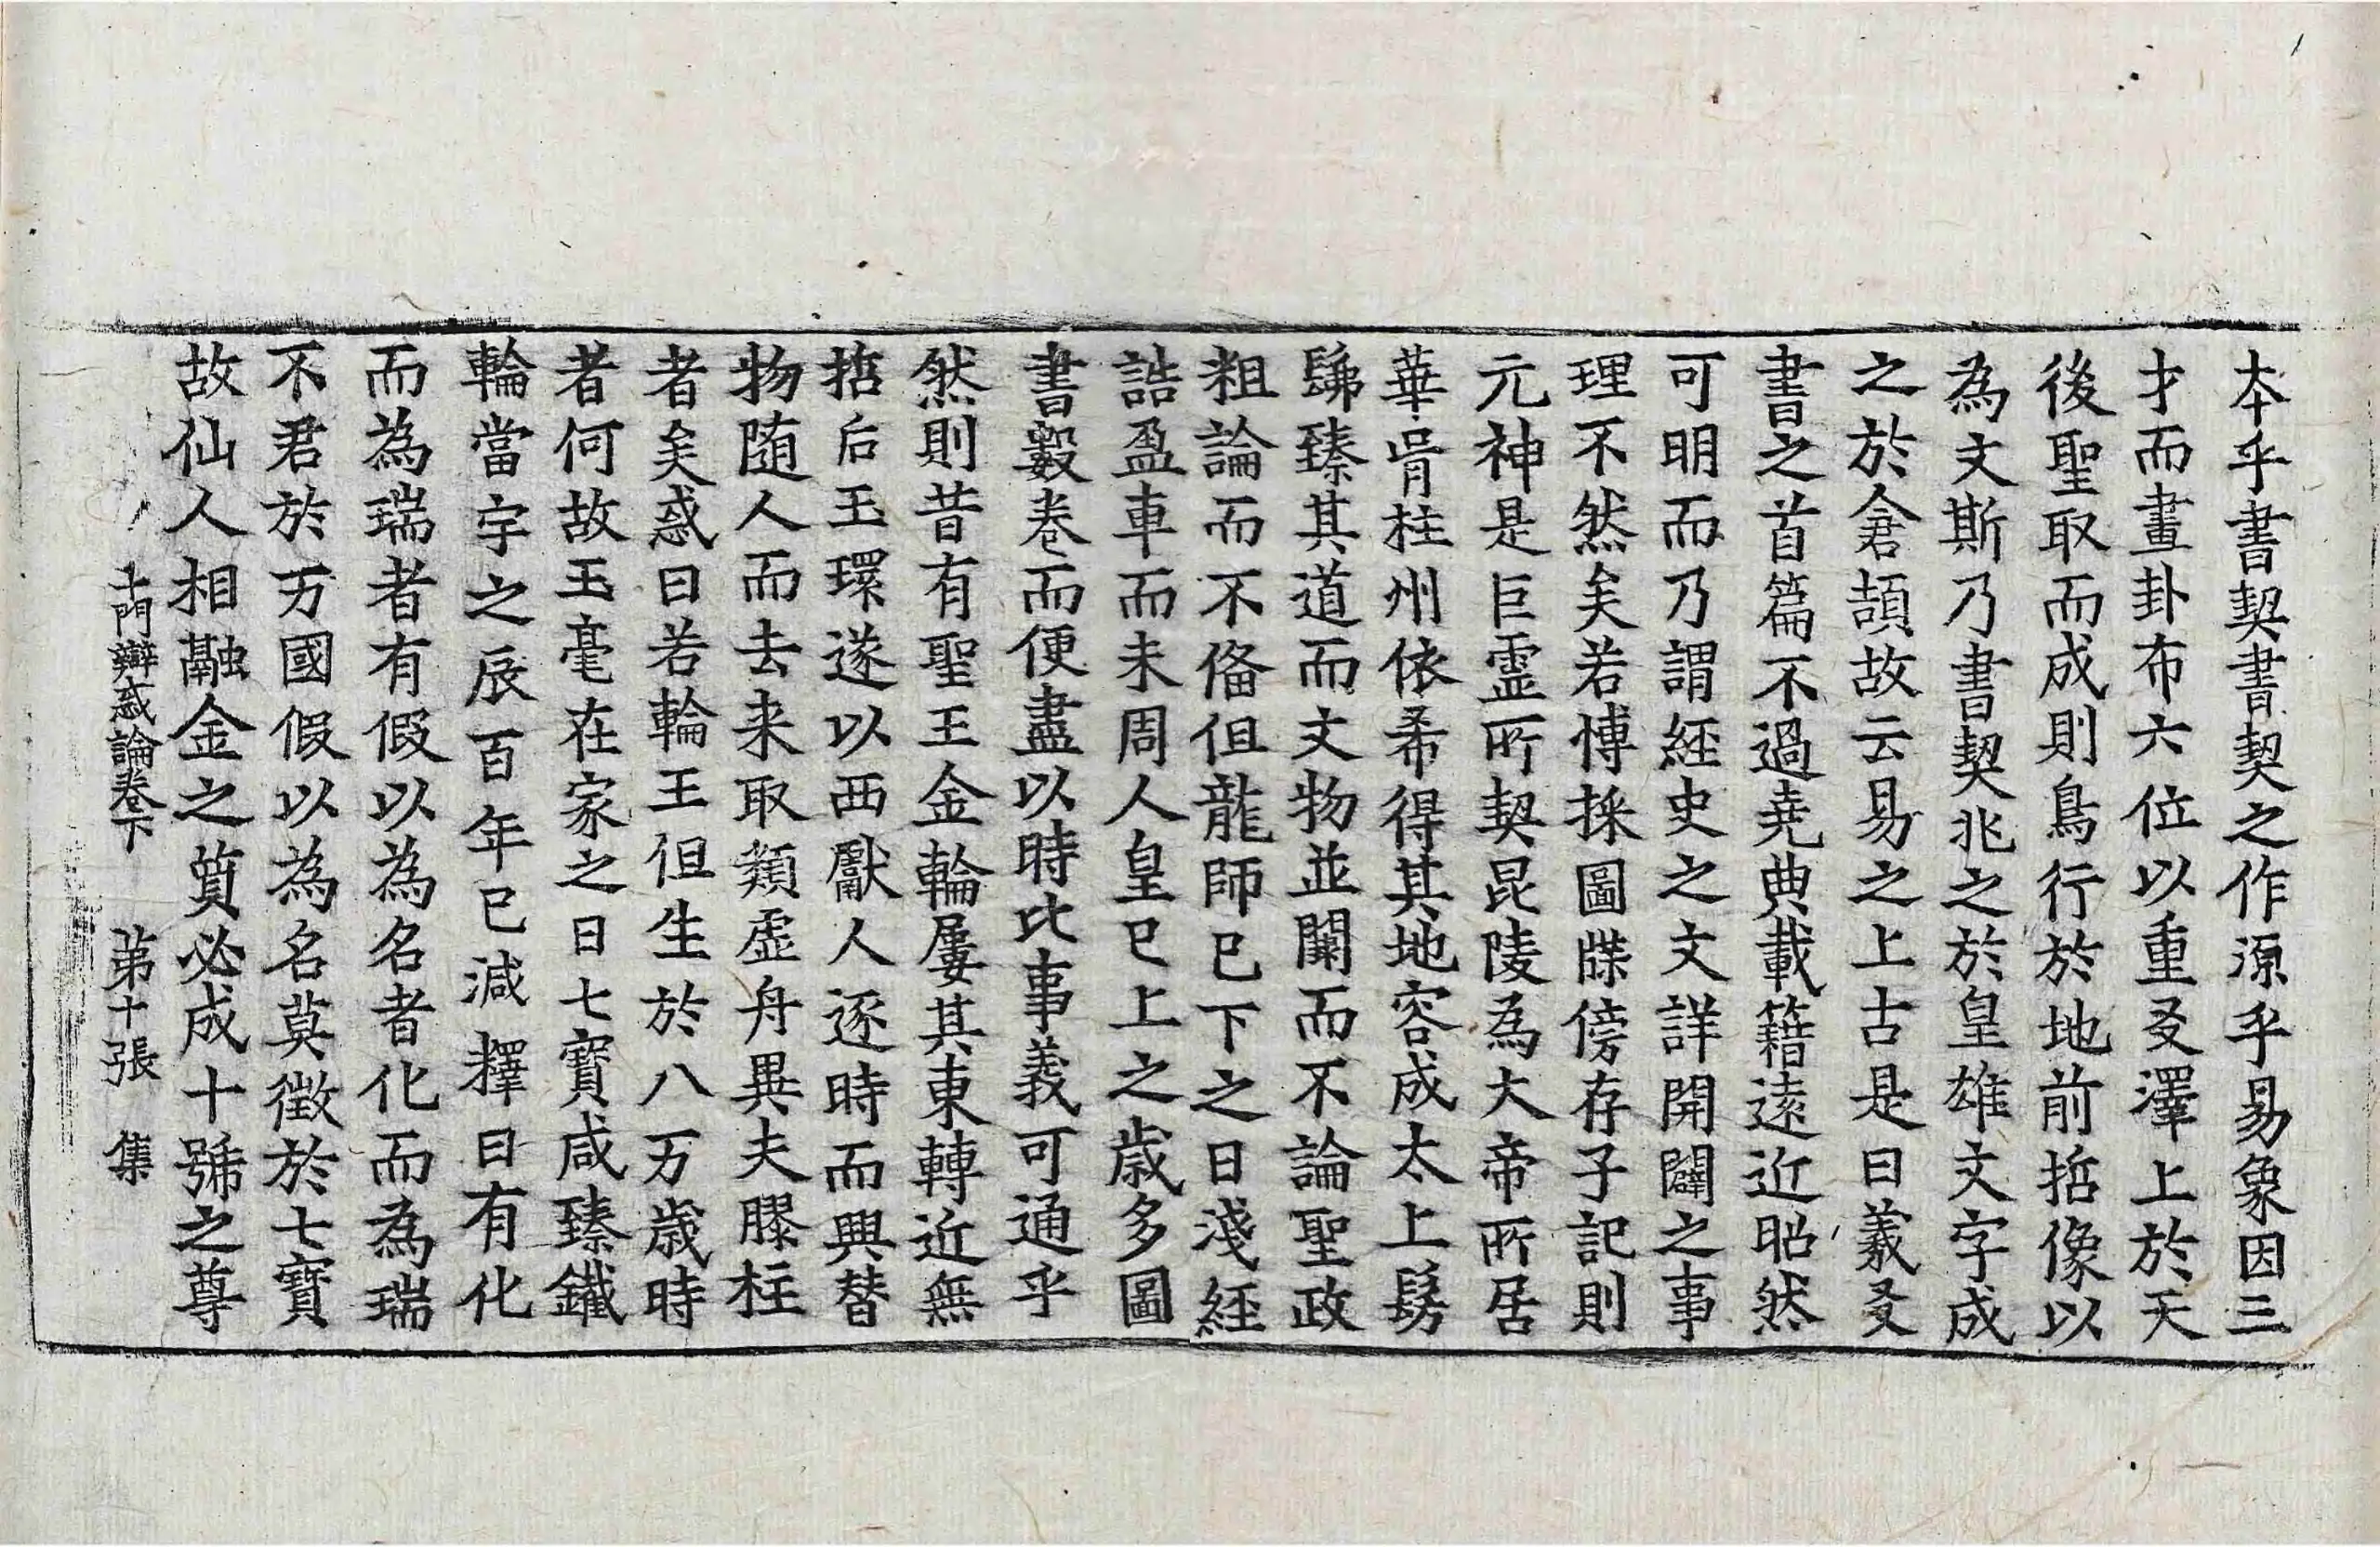 本乎書契書契之作源乎易象因三
才而畫卦布六位以重爻澤上於天
後聖取而成則鳥行於地前哲像以
為文斯乃書契兆之於皇雄文字成
之於倉頡故云易之上古是曰羲爻
書之首篇不過堯典載籍遠近昭然
可明而乃謂經史之文詳開闢之事
理不然矣若博採圖牒傍存子記則
元神是巨靈所契昆陵為大帝所居
華胥柱州依希得其地容成太上髣
髴臻其道而文物並闕而不論聖政
粗論而不俻但龍師已下之日淺經
誥盈車而未周人皇已上之歲多圖
書數卷而便盡以時比事義可通乎
然則昔有聖王金輪屢其東轉近無
哲后玉環遂以西獻人逐時而興替
物随人而去来取類虛舟異夫膠柱
者矣惑曰若輪王但生於八万歲時
者何故玉毫在家之日七寶咸臻鐵
輪當宇之辰百年已減釋曰有化
而為瑞者有假以為名者化而為瑞
不君於万國假以為名莫徵於七寶
故仙人相融金之質必成十號之尊
十門辯惑論卷下　第十張　集